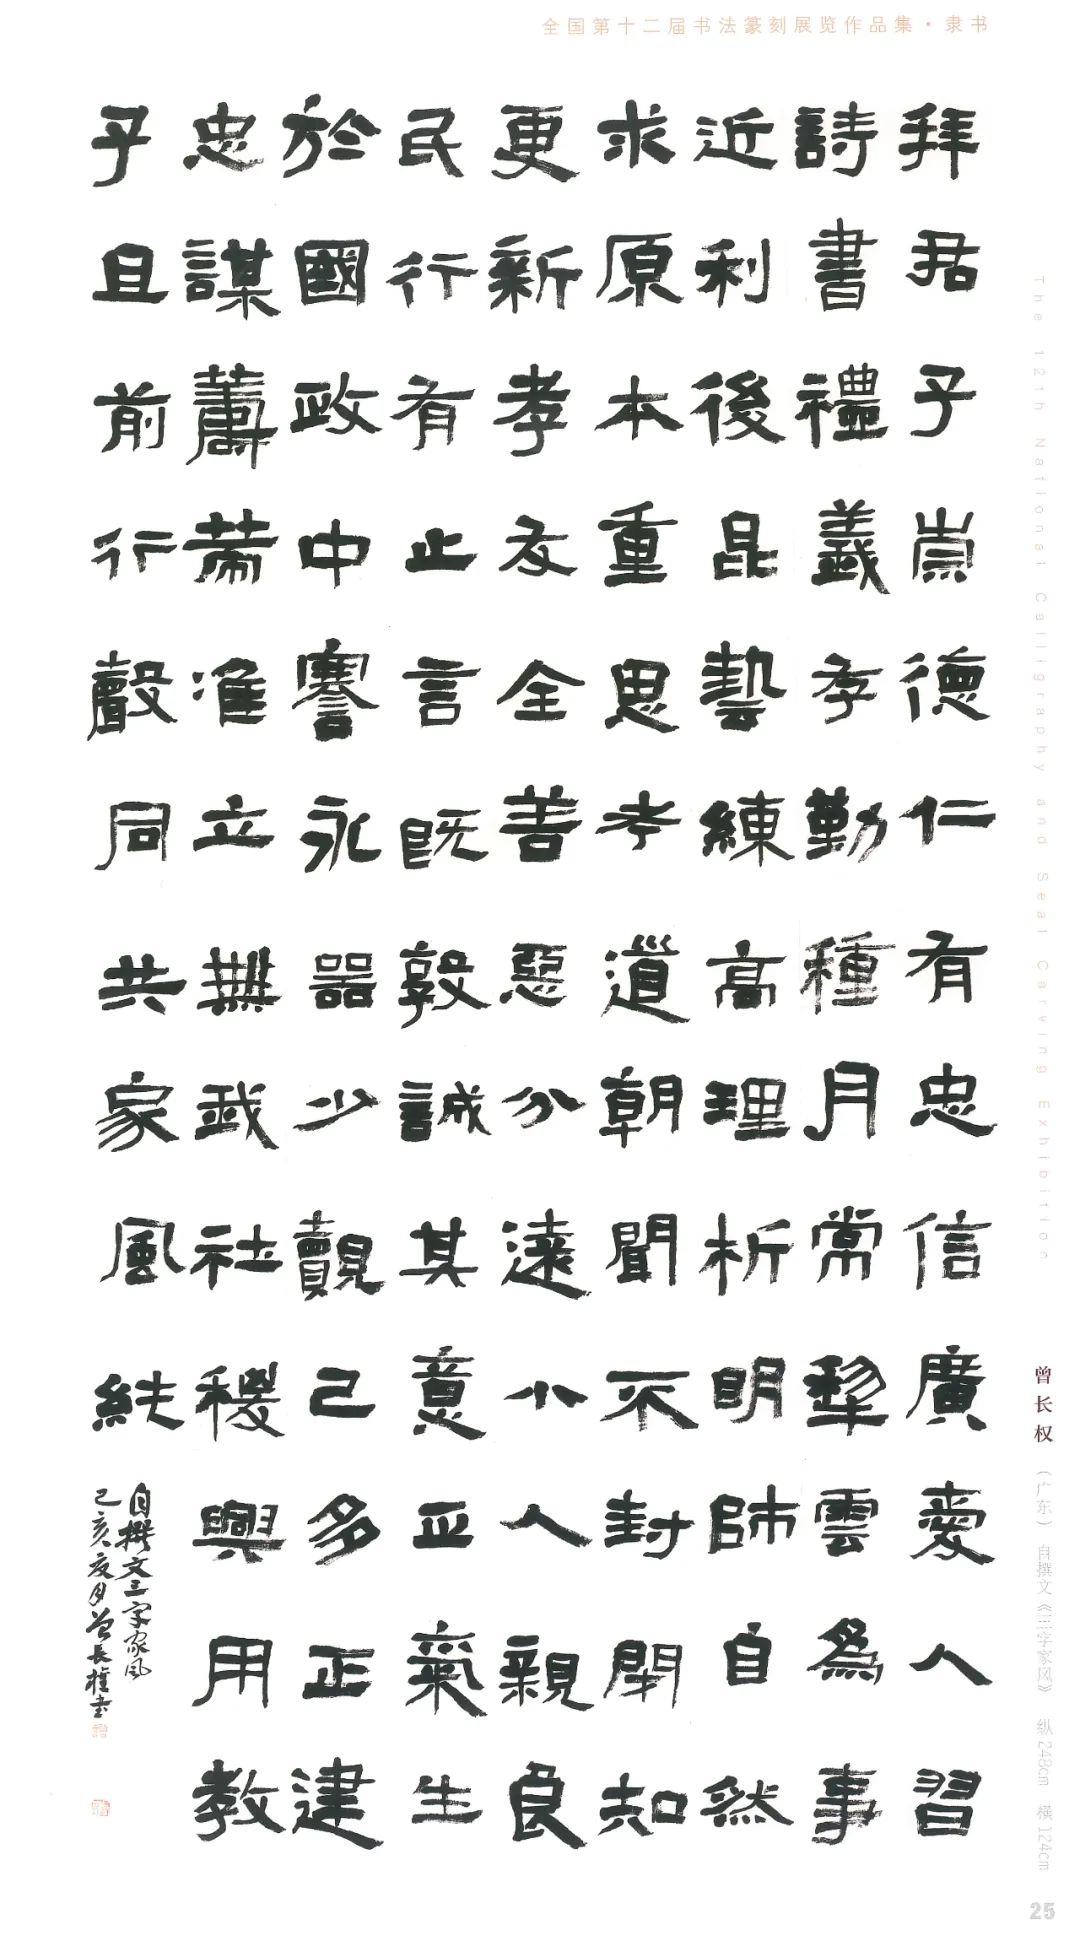 全国第十二届书法篆刻展览作品集·隶书
拜君子崇德仁有忠信廣愛人習
詩書禮義孝勤種月常犂雲為事
近利後昆藝練高理析明師自然
求原本重思考道朝聞不封閉知
更新孝友全善惡分遠小人親良
民行有止言既敦誠其意正氣生
於國政中謇永器少覿己多正建
忠謀准立無我社稷興用教
子且前行聲同共家風
自撰文三字家风
己亥夏月曾長權書
The 12th National Calligraphy and Seal Carving Exhibition
曾长权（广东）自撰文《三字家风》 纵248cm 横124cm
25